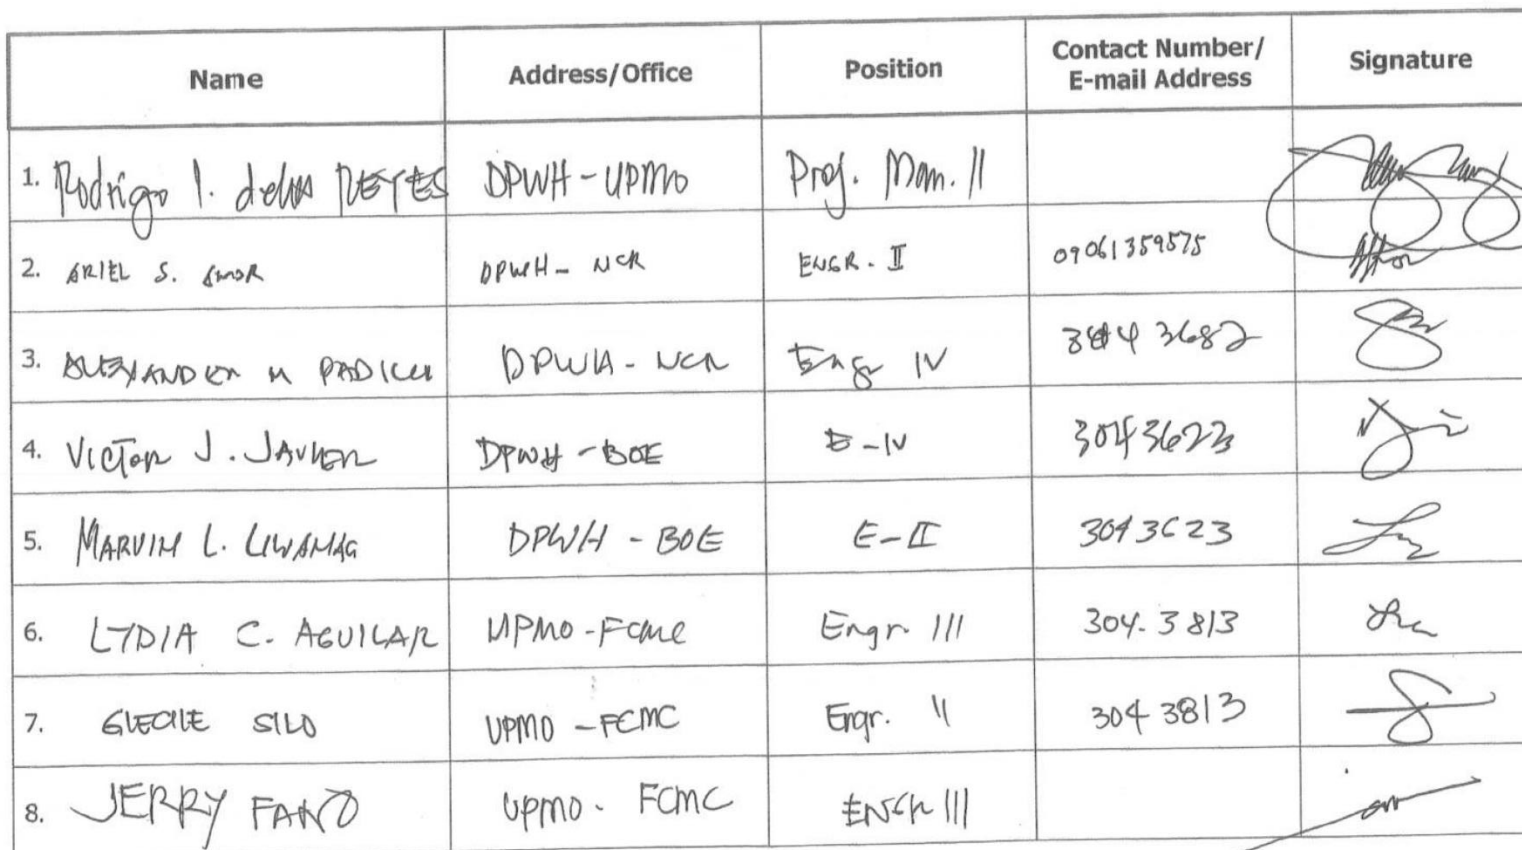 Name Address/Office Position Contact Number/ E-mail Address Signature
1. Rodrigo I. delos REYES DPWH-UPMO Proj. Man. II
2. ARIEL S. AMOR DPWH- NCR ENGR. II 09061359575
3. ALEXANDER M PADILLA DPWH- NCR Engr IV 3682
4. VICTOR J. JAVIER DPWH-BOE E-IV 3043623
5. MARVIN L. LIWANAG DPWH - BOE E-II 3043623
6. LYDIA C. AGUILAR UPMO-FCMC Engr. III 304.3813
7. SILO UPMO-FCMC Engr. II 304 3813
8. JERRY FANO UPMO- FCMC ENGR III